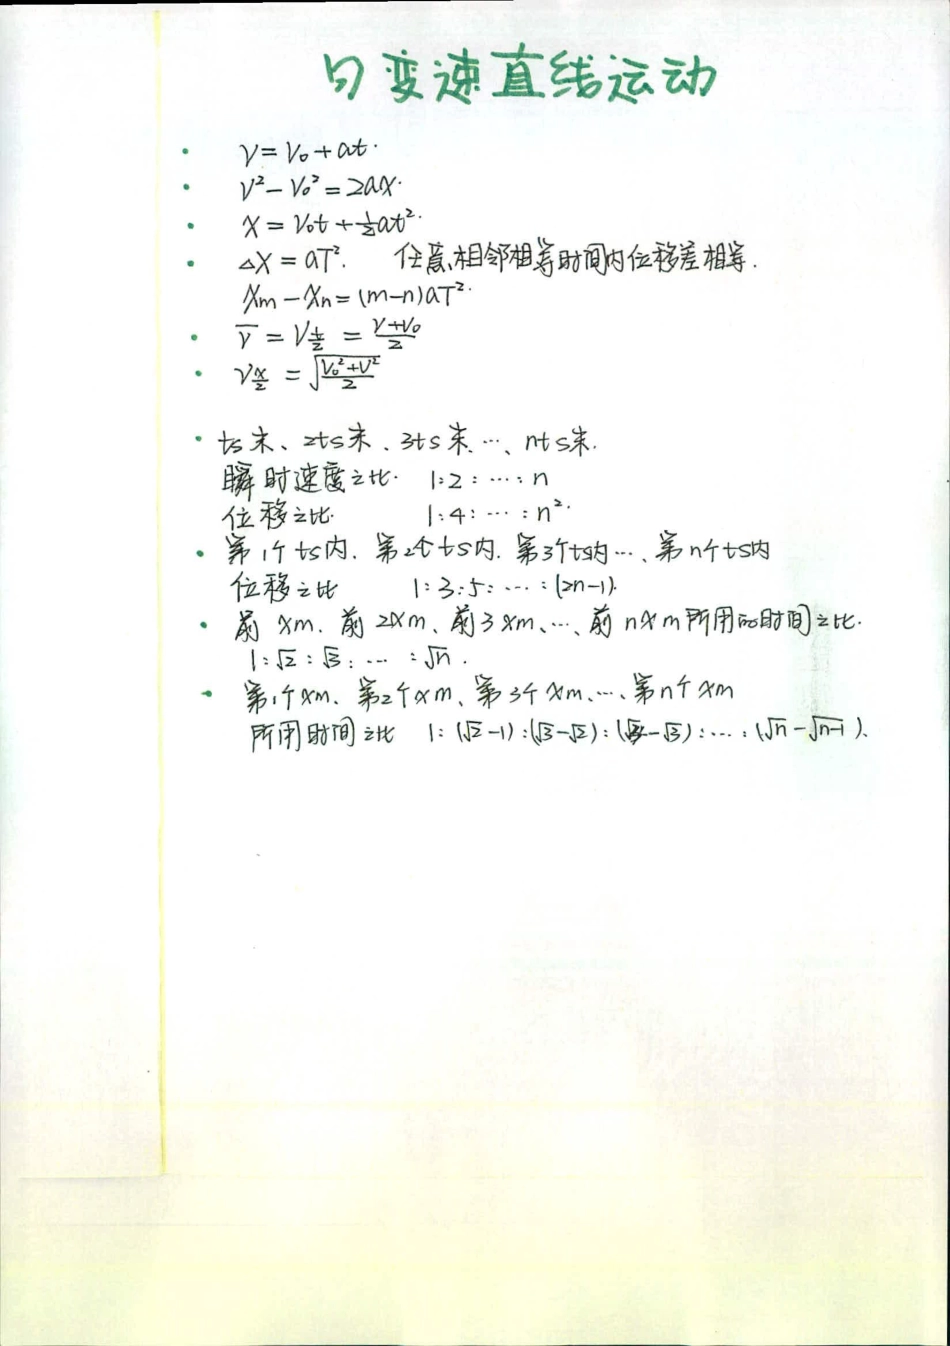 匀变速直线运动
· v=v₀+at.
· v²-v₀²=2ax.
· x=v₀t+½at².
· △x=aT². 任意相邻相等时间内位移差相等.
xm-xn=(m-n)aT².
· v̅=v_{t/2}=\frac{v+v₀}{2}
· v_{x/2}=\sqrt{\frac{v₀²+v²}{2}}
· ts末、2ts末、3ts末、…、nts末.
瞬时速度之比. 1:2:…:n
位移之比. 1:4:…:n².
· 第1个ts内.第2个ts内.第3个ts内…、第n个ts内
位移之比 1:3:5:…:(2n-1).
· 前xm.前2xm、前3xm、…、前nxm所用的时间之比.
1:√2:√3:…:√n.
· 第1个xm、第2个xm、第3个xm、…、第n个xm
所用时间之比 1:(√2-1):(√3-√2):(√4-√3):…:(√n-√n-1).